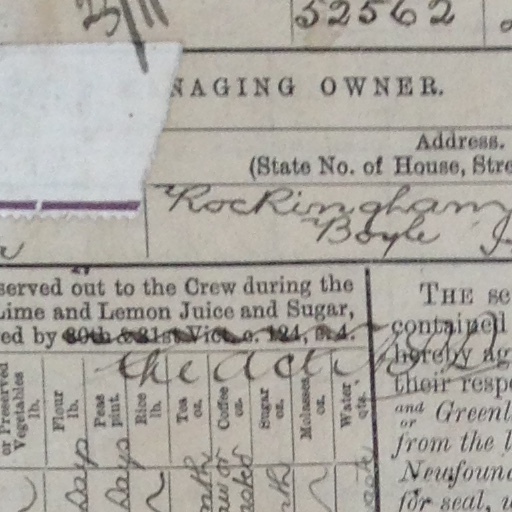 52562
NAGING OWNER.
Address.
(State No. of House, Stre
Rockingham
Boyle
served out to the Crew during the
Lime and Lemon Juice and Sugar,
ed by 30th & 31st Vict. c. 124, s. 4.
the Act
or Preserved Vegetables lb.
Flour lb.
Peas pint.
Rice lb.
Tea oz.
Coffee oz.
Sugar oz.
Molasses, oz.
Water, qts.
THE se
contained
hereby ag
their respe
and or Greenl
from the
Newfound
for seal,